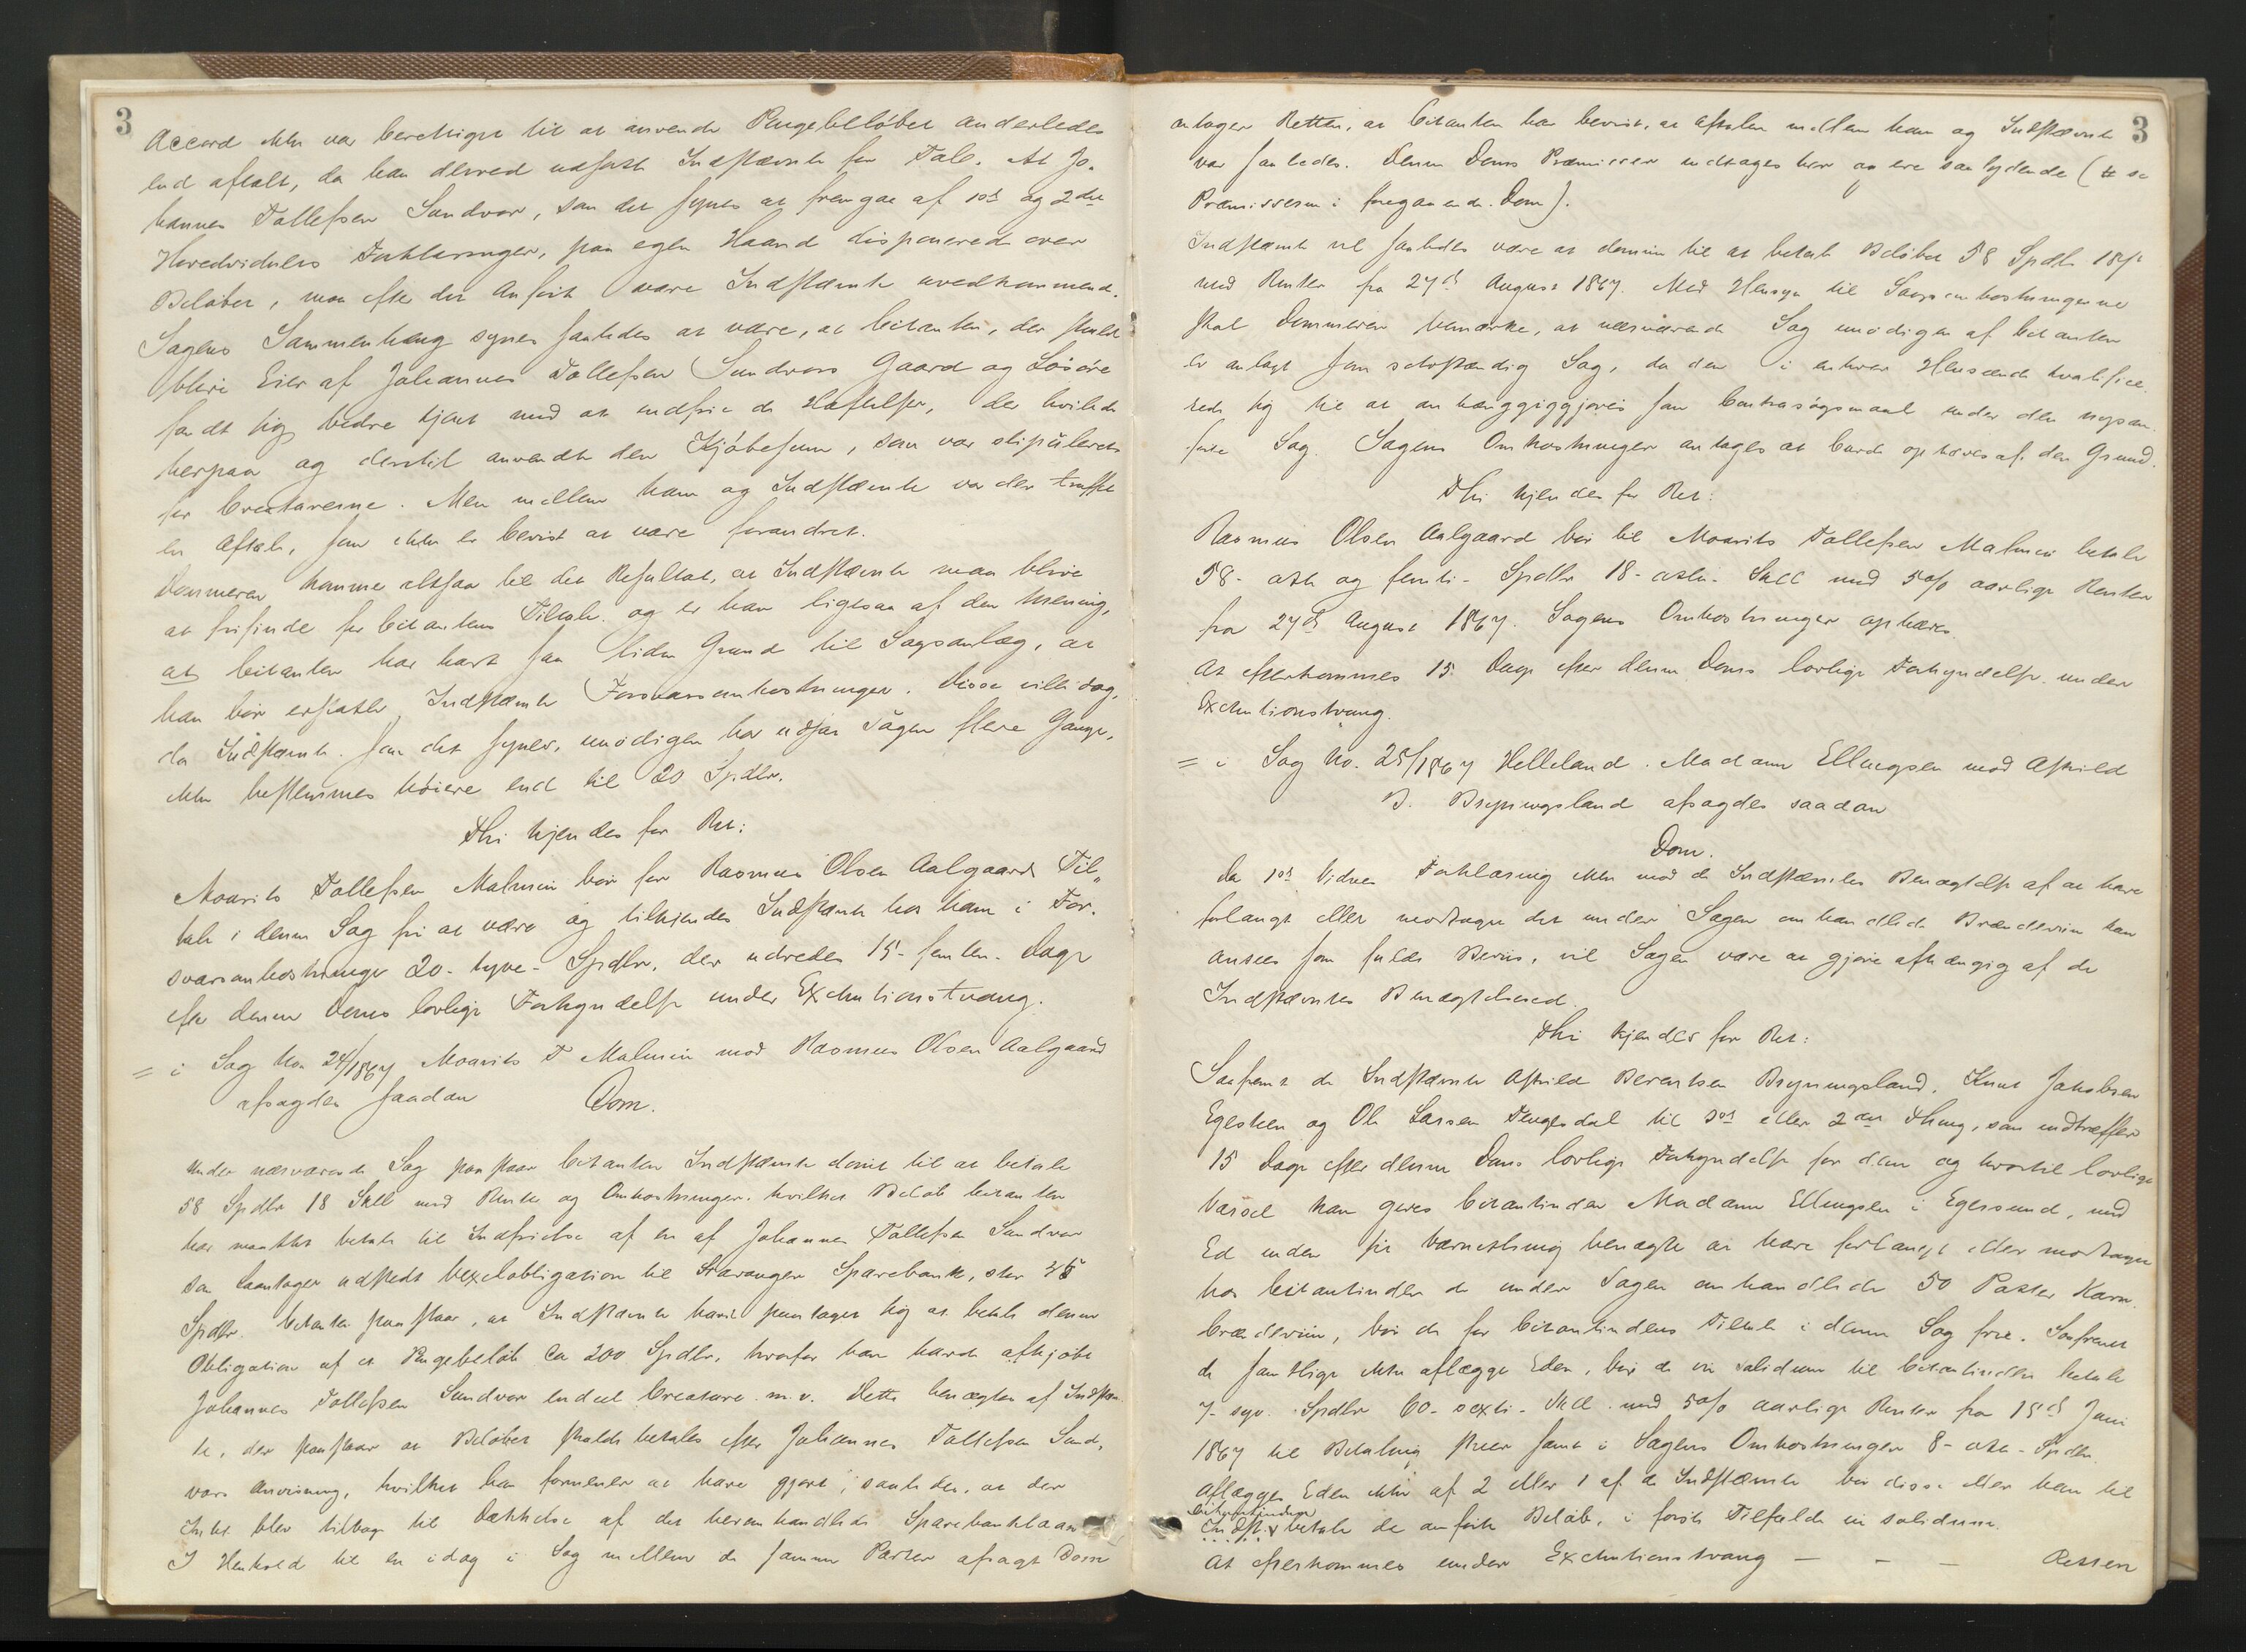 3
Accord ikke var berettiget til at anvende Pengebeløbet anderledes
end aftalt, da han derved udsatte Indstævnte for Tab. At Jo-
hannes Tollefsen Sandvor, som det synes at fremgaa af 1ste og 2det
Hovedvidnets Forklaringer, paa egen Haand disponerede over
Beløbet, maa efter det Anførte være Indstævnte uvedkommende.
Sagens Sammenhæng synes saaledes at være, at Citanten, der skulde
blive Eier af Johannes Tollefsen Sandvors Gaard og Løsøre
fandt sig bedre tjent med at indfrie de Hæftelser, der hvilede
herpaa og dertil anvendte den Kjøbesum, som var stipuleret
for Creaturerne. Men mellem ham og Indstævnte var der truffet
en Aftale, som ikke er bevist at være forandret.
Dommeren kommer altsaa til det Resultat, at Indstævnte maa blive
at frifinde for Citantens Tiltale og er han ligesaa af den Mening,
at Citanten har havt saa liden Grund til Sagsanlæg, at
han bør erstatte Indstævnte Forsvarsomkostninger. Disse ville dog,
da Indstævnte som det synes, unødigen har udsat Sagen flere Gange,
ikke bestemmes høiere end til 20 Spdlr.
Thi kjendes for Ret:
Maurits Tollefsen Malmin bør for Rasmus Olsen Aalgaards Til-
tale i denne Sag fri at være og tilkjendes Indstævnte hos ham i For-
svarsomkostninger 20- tyve- Spdlr, der udredes 15- femten- Dage
efter denne Doms lovlige Forkyndelse under Exekutionstvang.
= i Sag No 24/1867 Maurits T Malmin mod Rasmus Olsen Aalgaard
afsagdes saadan Dom.
Under nærværende Sag paastaar Citanten Indstævnte dømt til at betale
58 Spdlr 18 Skll med Renter og Omkostninger, hvilket Beløb Citanten
har maattet betale til Indfrielse af en af Johannes Tollefsen Sandvor
som Laantager udstedt Vexelobligation til Stavanger Sparebank, stor 75
Spdlr. Citanten paastaar, at Indstævnte havde paataget sig at betale denne
Obligation af et Pengebeløb ca 200 Spdlr, hvorfor han havde afkjøbt
Johannes Tollefsen Sandvor endeel Creature m.v. Dette benægtes af Indstævn
te, der paastaar at Beløbet skulde betales efter Johannes Tollefsen Sand-
vors Anvisning, hvilket han formener at have gjort, saaledes, at der
Intet blev tilbage til Dækkelse af det heromhandlede Sparebanklaan
I Henhold til en idag i Sag mellem de samme Parter afsagt Dom
3
antager Retten, at Citanten har bevist, at Aftalen mellem ham og Indstævnte
var saaledes. Denne Doms Præmisser indtages her og ere saalydende (se
Præmisserne i foregaaende Dom).
Indstævnte vil saaledes være at dømme til at betale Beløbet 58 Spdlr 18 s
med Renter fra 27de August 1867. Med Hensyn til Sagsomkostningerne
skal Dommeren bemærke, at nærværende Sag unødigen af Citanten
er anlagt som selvstændig Sag, da den i enhver Henseende kvalifice
rede sig til at anhængiggjøres som Contrasøgsmaal under den nysan
førte Sag. Sagens Omkostninger antages at burde ophæves af den Grund.
Thi kjendes for Ret:
Rasmus Olsen Aalgaard bør til Maurits Tollefsen Malmin betale
58- otte og femti- Spdlr 18- atten- Skll med 5 0/0 aarlige Renter
fra 27de August 1867. Sagens Omkostninger ophæves.
At efterkommes 15 Dage efter denne Doms lovlige Forkyndelse under
Exekutionstvang.
= i Sag No. 25/1867 Helleland. Madame Ellingsen mod Askild
B. Bryningsland afsagdes saadan
Dom.
Da 1ste Vidnes Forklaring ikke mod de Indstævntes Benægtelse af at have
forlangt eller modtaget det under Sagen omhandlede Brændeviin kan
ansees som fuldt Beviis, vil Sagen være at gjøre afhængig af de
Indstævntes Benægtelseseed.
Thi kjendes for Ret:
Saafremt de Indstævnte Askild Berentsen Bryningsland, Knut Jakobsen
Egesteen og Ole Larsen Tengesdal til 1ste eller 2det Thing, som indtræffer
15 Dage efter denne Doms lovlige Forkyndelse for dem og hvortil lovligt
Varsel kan gives Citantinden Madame Ellingsen i Egersund, med
Ed inden sit Værnething benægte at have forlangt eller modtaget
hos Citantinden de under Sagen omhandlede 50 Potter Korn-
brændeviin, bør de for Citantindens Tiltale i denne Sag frie. Saafremt
de samtlige ikke aflægge Eden, bør de in solidum til Citantinden betale
7- syv- Spdlr 60- sexti- Skll med 5 0/0 aarlige Renter fra 15de Juni
1867 til Betaling skeer samt i Sagens Omkostninger 8- otte- Spdlr.
Aflægges Eden ikke af 2 eller 1 af de Indstævnte bør disse eller han til
Citantinden
Indst. betale de anførte Beløb, i første Tilfælde in solidum.
At efterkommes under Exekutionstvang — — — Retten